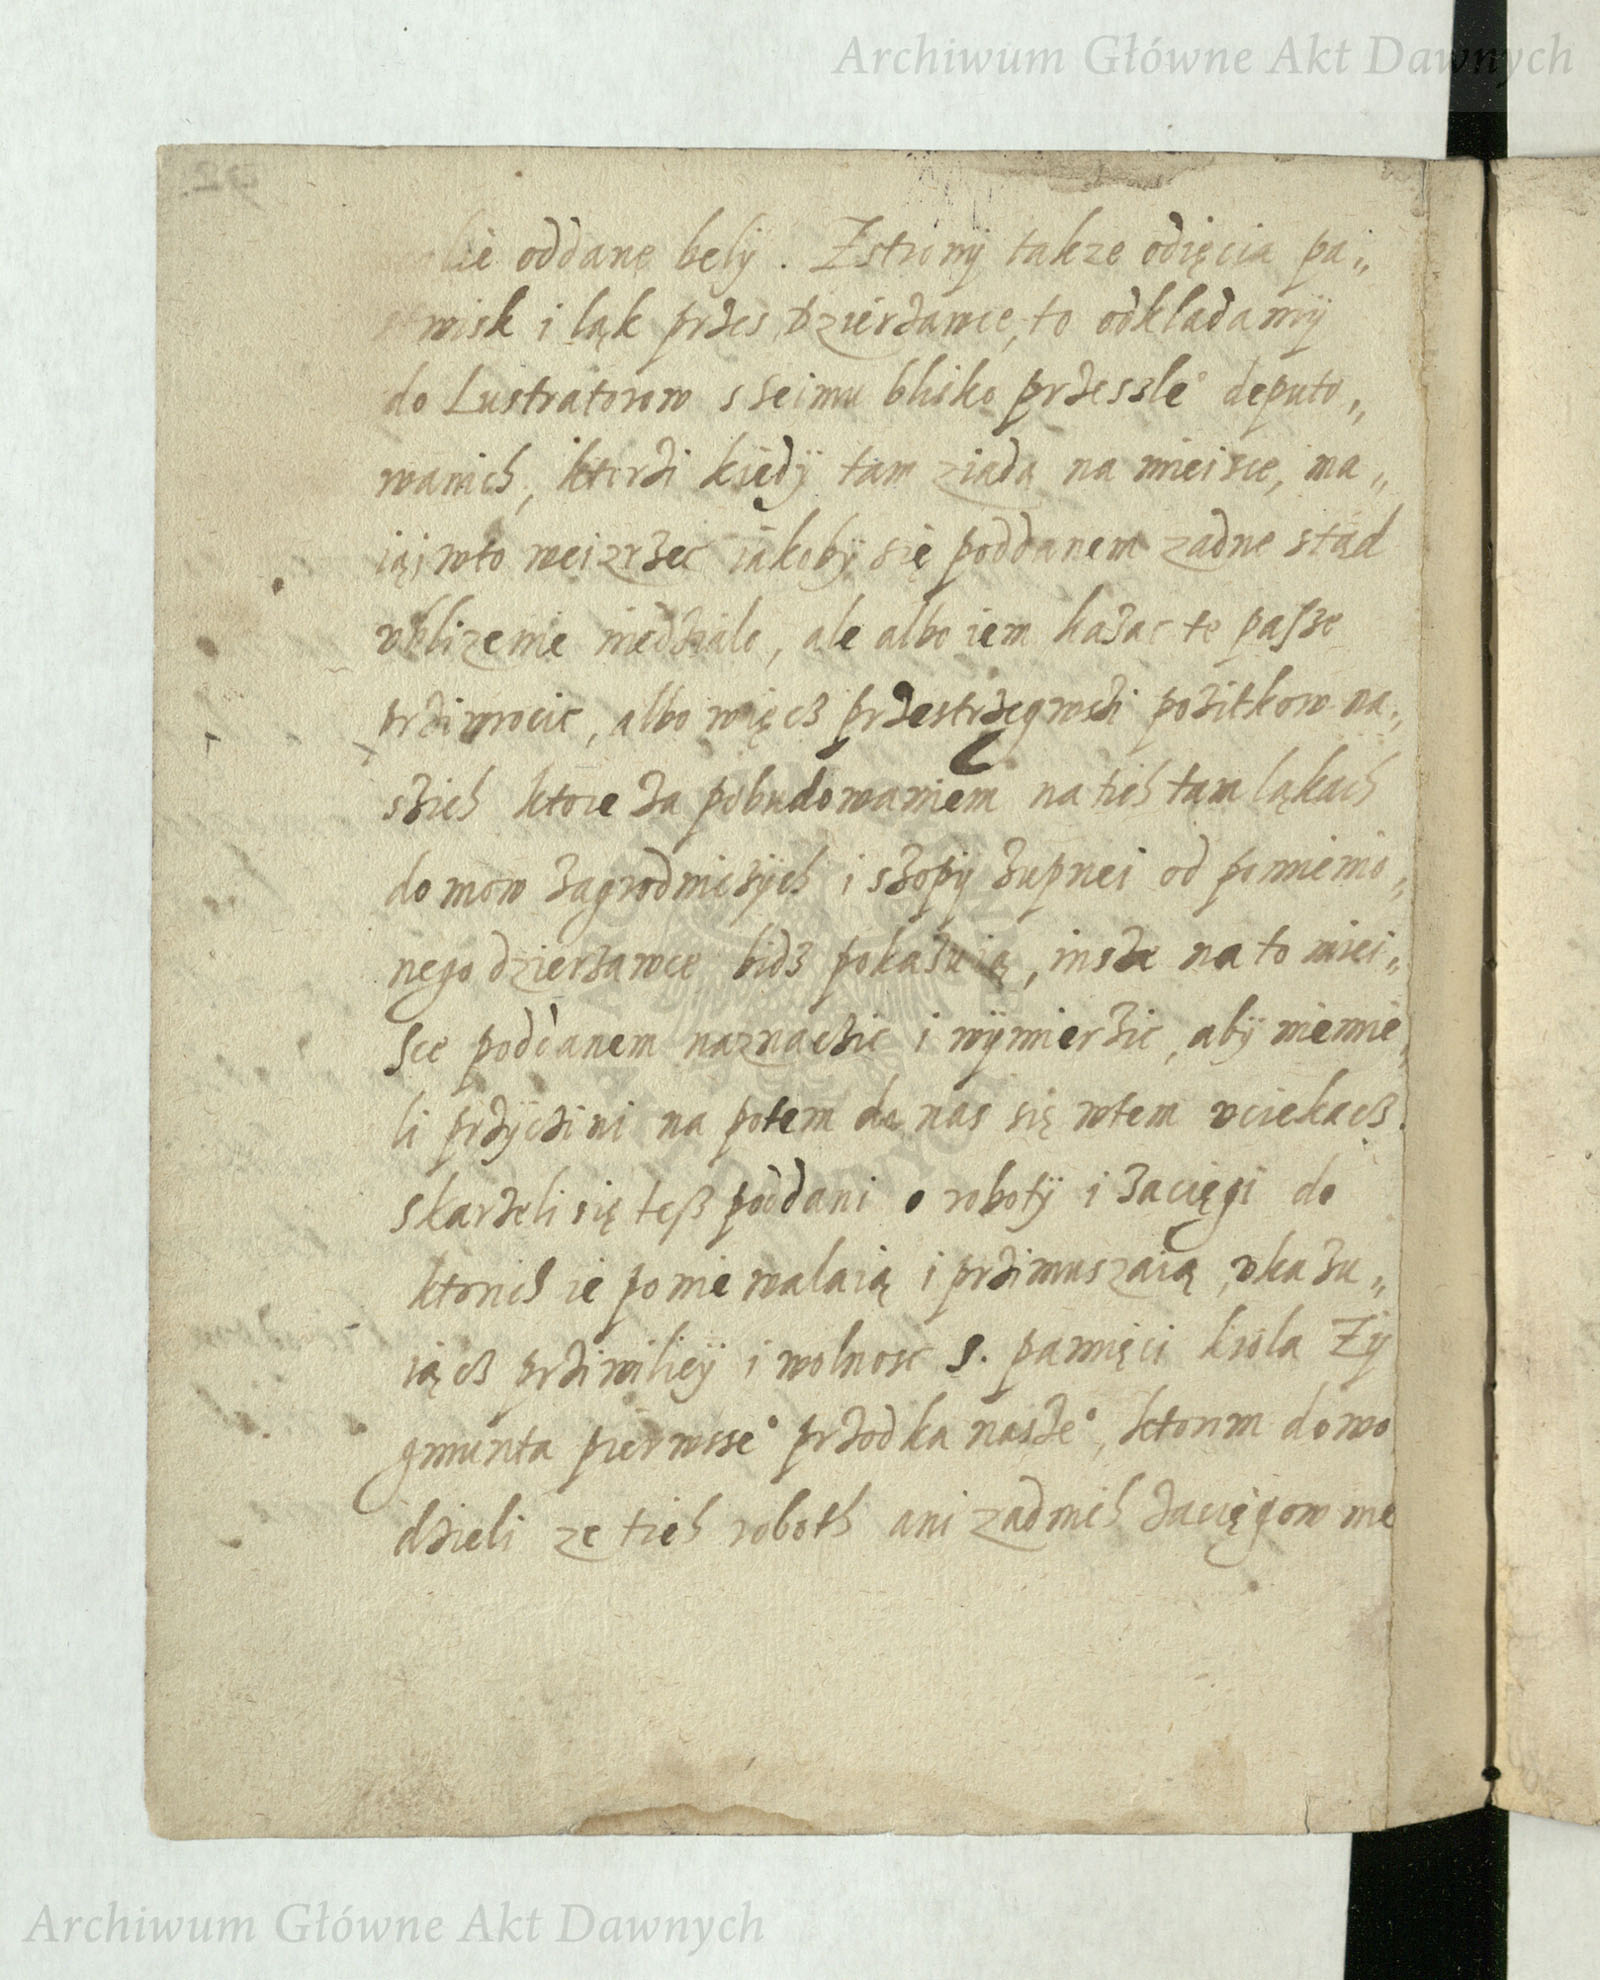 Archiwum Główne Akt Dawnych
oddanę bęly. Zstrony takze odięcia pa„
wisk i ląk przes dzierzawcę, to odkladamÿ
do Lustratorow s seimu blisko przesslė deputo„
wanich, ktorzi kiedÿ tam ziadą na mieisce, ma„
ią wto weizrzec iakobÿ się poddanem zadne stąd
vblizenie niedzialo, ale albo iem kazac te passe
przÿwrocic, albo więcz przestrzegwszi pozitkow na„
szich ktore za pobudowaniem na tich tam ląkach
domow zagrodniczÿch i szopÿ zupnei od pomienio„
nego dzierzawcę bidz pokazuią, insze na to miei„
sce poddanem naznaczic i wÿmierzic, abÿ niemie„
li przÿczini na potem do nas się wtem vciekacz.
Skarzeli się tesz poddani o robotÿ i zacięgi do
ktorich ie poniewalaią i przimuszaią, vkazu„
iącz prziwileÿ i wolnosc S. pamięci krola Zÿ
gmunta pierwsse° przodka nasze°, ktorim dowo
dzieli ze tich roboth ani zadnich zacięgow nie
Archiwum Główne Akt Dawnych